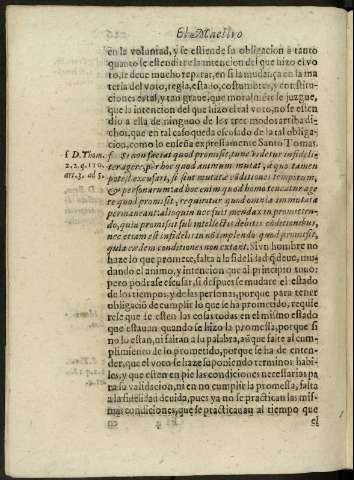 El Maestro
en la voluntad, y se estiende su obligacion a tanto
quanto se estendiere la intencion del que hizo el vo
to, se deue mucho reparar, en si la mudança en la ma
teria del voto, regla, estado, costumbres, y constitu-
ciones es tal, y tan graue, que moralmēte se juzgue,
que la intencion del que hizo el tal voto, no se esten
dio a ella de ninguno de los tres modos arriba di-
chos, que en tal caso queda escusado de la tal obliga-
cion, como lo enseña expressamente Santo Tomas.
f D. Thom.
2.2.q.110.
art.3. ad 5.
f. Si non faciat quod promisit, tunc videtur infideli-
ter agere, per hoc quod animum mutat, à quo tamen
potest excusari, si sint mutatæ cōditiones temporum,
& personarum: ad hoc enim quod homo teneatur age
re quod promisit, requiritur quod omnia immutata
permaneant: alioquin nec fuit mendax in promitten-
do, quia promisit sub intellectis debitis cōditionibus,
nec etiam est infidelis non implendo quod promisit,
quia eædem conditiones non extant. Si vn hombre no
haze lo que promete, falta a la fidelidad q̃ deue, mu-
dando el animo, y intencion que al principio tuuo:
pero podrase escusar, si despues se mudare el estado
de los tiempos, y de las personas, porque para tener
obligaciō de cumplir lo que se ha prometido, requie
rese que se esten las cosas todas en el mismo estado
que estauan quando se hizo la promessa, porque si
no lo estan, ni faltan a su palabra, aũque falte al cum-
plimiento de lo prometido, porque se ha de enten-
der, que el voto se haze suponiendo terminos habi-
les, y que esten en pie las condiciones necessarias pa
ra su validacion, ni en no cumplir la promessa, falta
a la fidelidad deuida, pues ya no se practican las mis-
mas condiciones, que se practicauan al tiempo que